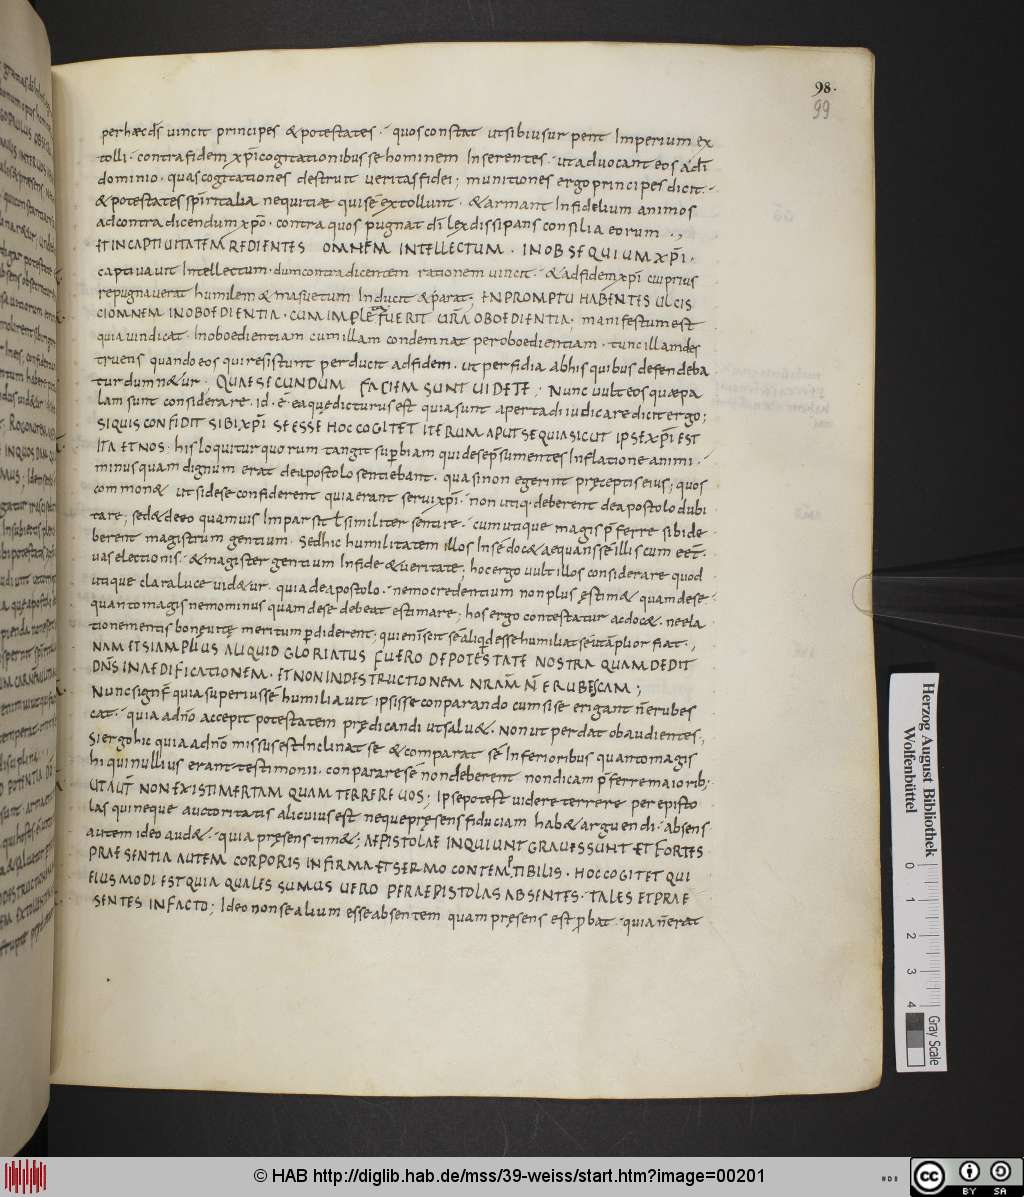 98.
99
perhæc d̅s vincit principes & potestates · quos constat ut sibi usurpent Imperium ex
tolli · contra fidem xp̅i cogitationibus se hominem Inserentes · ut advocant eos a d̅i
dominio · quas cogitationes destruit veritas fidei ; munitiones ergo principes dicit ·
& potestates sp̅iritalia nequitiæ qui se extollunt · & armant Infidelium animos
ad contradicendum xp̅o · contra quos pugnat d̅i lex dissipans consilia eorum .,
ET IN CAPTIVITATEM REDIENTES OMNEM INTELLECTUM · IN OBSEQUIUM XP̅I ·
captivavit Intellectum · dum contradicentem rationem vincit · & ad fidem xp̅i cui prius
repugnaverat humilem & masuetum Inducit & parat ; EN PROMPTU HABENTES ULCIS
CI OMNEM INOBOEDIENTIA · CUM IMPLETA FUERIT UR̅A OBOEDIENTIA ; manifestum est
quia vindicat · Inoboedientiam cum illam condemnat per oboedientiam · tunc illam des
truens quando eos qui resistunt perducit ad fidem · ut perfidia ab his quibus defendeba
tur damn&ur ; QUAE SECUNDUM FACIEM SUNT VIDETE ; Nunc vult eos quæ pa
lam sunt considerare · id · e̅ ea quæ dicturus est quia sunt aperta diiudicare dicit ergo ;
SI QUIS CONFIDIT SIBI XP̅I SE ESSE HOC COGITET ITERUM APUT SE QUIA SICUT IPSE XP̅I EST
ITA ET NOS ; his loquitur quorum tangit sup̅biam qui de se p̅sumentes Inflatione animi ·
minus quam dignum erat de apostolo sentiebant · quasi non egerint præceptis eius ; quos
common& ut si de se confiderent quia erant servi xp̅i · non utiq · deberent de apostolo dubi
tare ; sed & de eo quamvis Impar sit t̅ similiter sentire · cum utique magis p̅ferre sibi de
berent magistrum gentium · sed hic humilitatem illos In se doc& aequans se illis cum ee̅t ·
vas electionis · & magister gentium In fide & veritate ; hoc ergo vult illos considerare quod
utique clara luce vid&ur · quia de apostolo · nemo credentium non plus ęstim& quam de se ·
quanto magis nemo minus quam de se debeat estimare ; hos ergo contestatur ac doc& · ne ela
tione mentis bonę vitę meritum p̅diderent ; qui eni̅ scit se aliqd̅ esse humiliat se ut a p̅lior fiat .,
NAM ET SI AMPLIUS ALIQUID GLORIATUS FUERO DE POTESTATE NOSTRA QUAM DEDIT
DN̅S IN AEDIFICATIONEM · ET NON IN DESTRUCTIONEM NR̅AM N̅ ERUBESCAM ;
Nunc signf̅ quia superius se humiliavit ipsis se conparando cum si se erigant n̅ erubes
cat · quia a dn̅o accepit potestatem prædicandi ut salu& · non ut perdat obaudientes .,
Si ergo hic quia a dn̅o missus est Inclinat se & comparat se Inferioribus quanto magis
hi qui nullius erant testimonii · conparare se non deberent non dicam p̅ferre maiorib; ·
UT AUT̅ NON EXISTIMER TAM QUAM TERRERE VOS ; Ipse potest videre terrere per episto
las qui neque auctoritatis alicuius est neque præsens fiduciam hab& arguendi · absens
autem ideo aud& · quia præsens tim& ; AEPISTOLAE INQUIUNT GRAVES SUNT ET FORTES
PRAESENTIA AUTEM CORPORIS INFIRMA ET SERMO CONTEMPTIBILIS · HOC COGITET QUI
EIUSMODI EST QUIA QUALES SUMUS VERO PER AEPISTOLAS ABSENTES · TALES ET PRAE
SENTES IN FACTO ; Ideo non se alium esse absentem quam præsens est p̅bat · quia n̅ erat
Herzog August Bibliothek
Wolfenbüttel
0 1 2 3 4
Gray Scale
© HAB http://diglib.hab.de/mss/39-weiss/start.htm?image=00201
cc BY SA